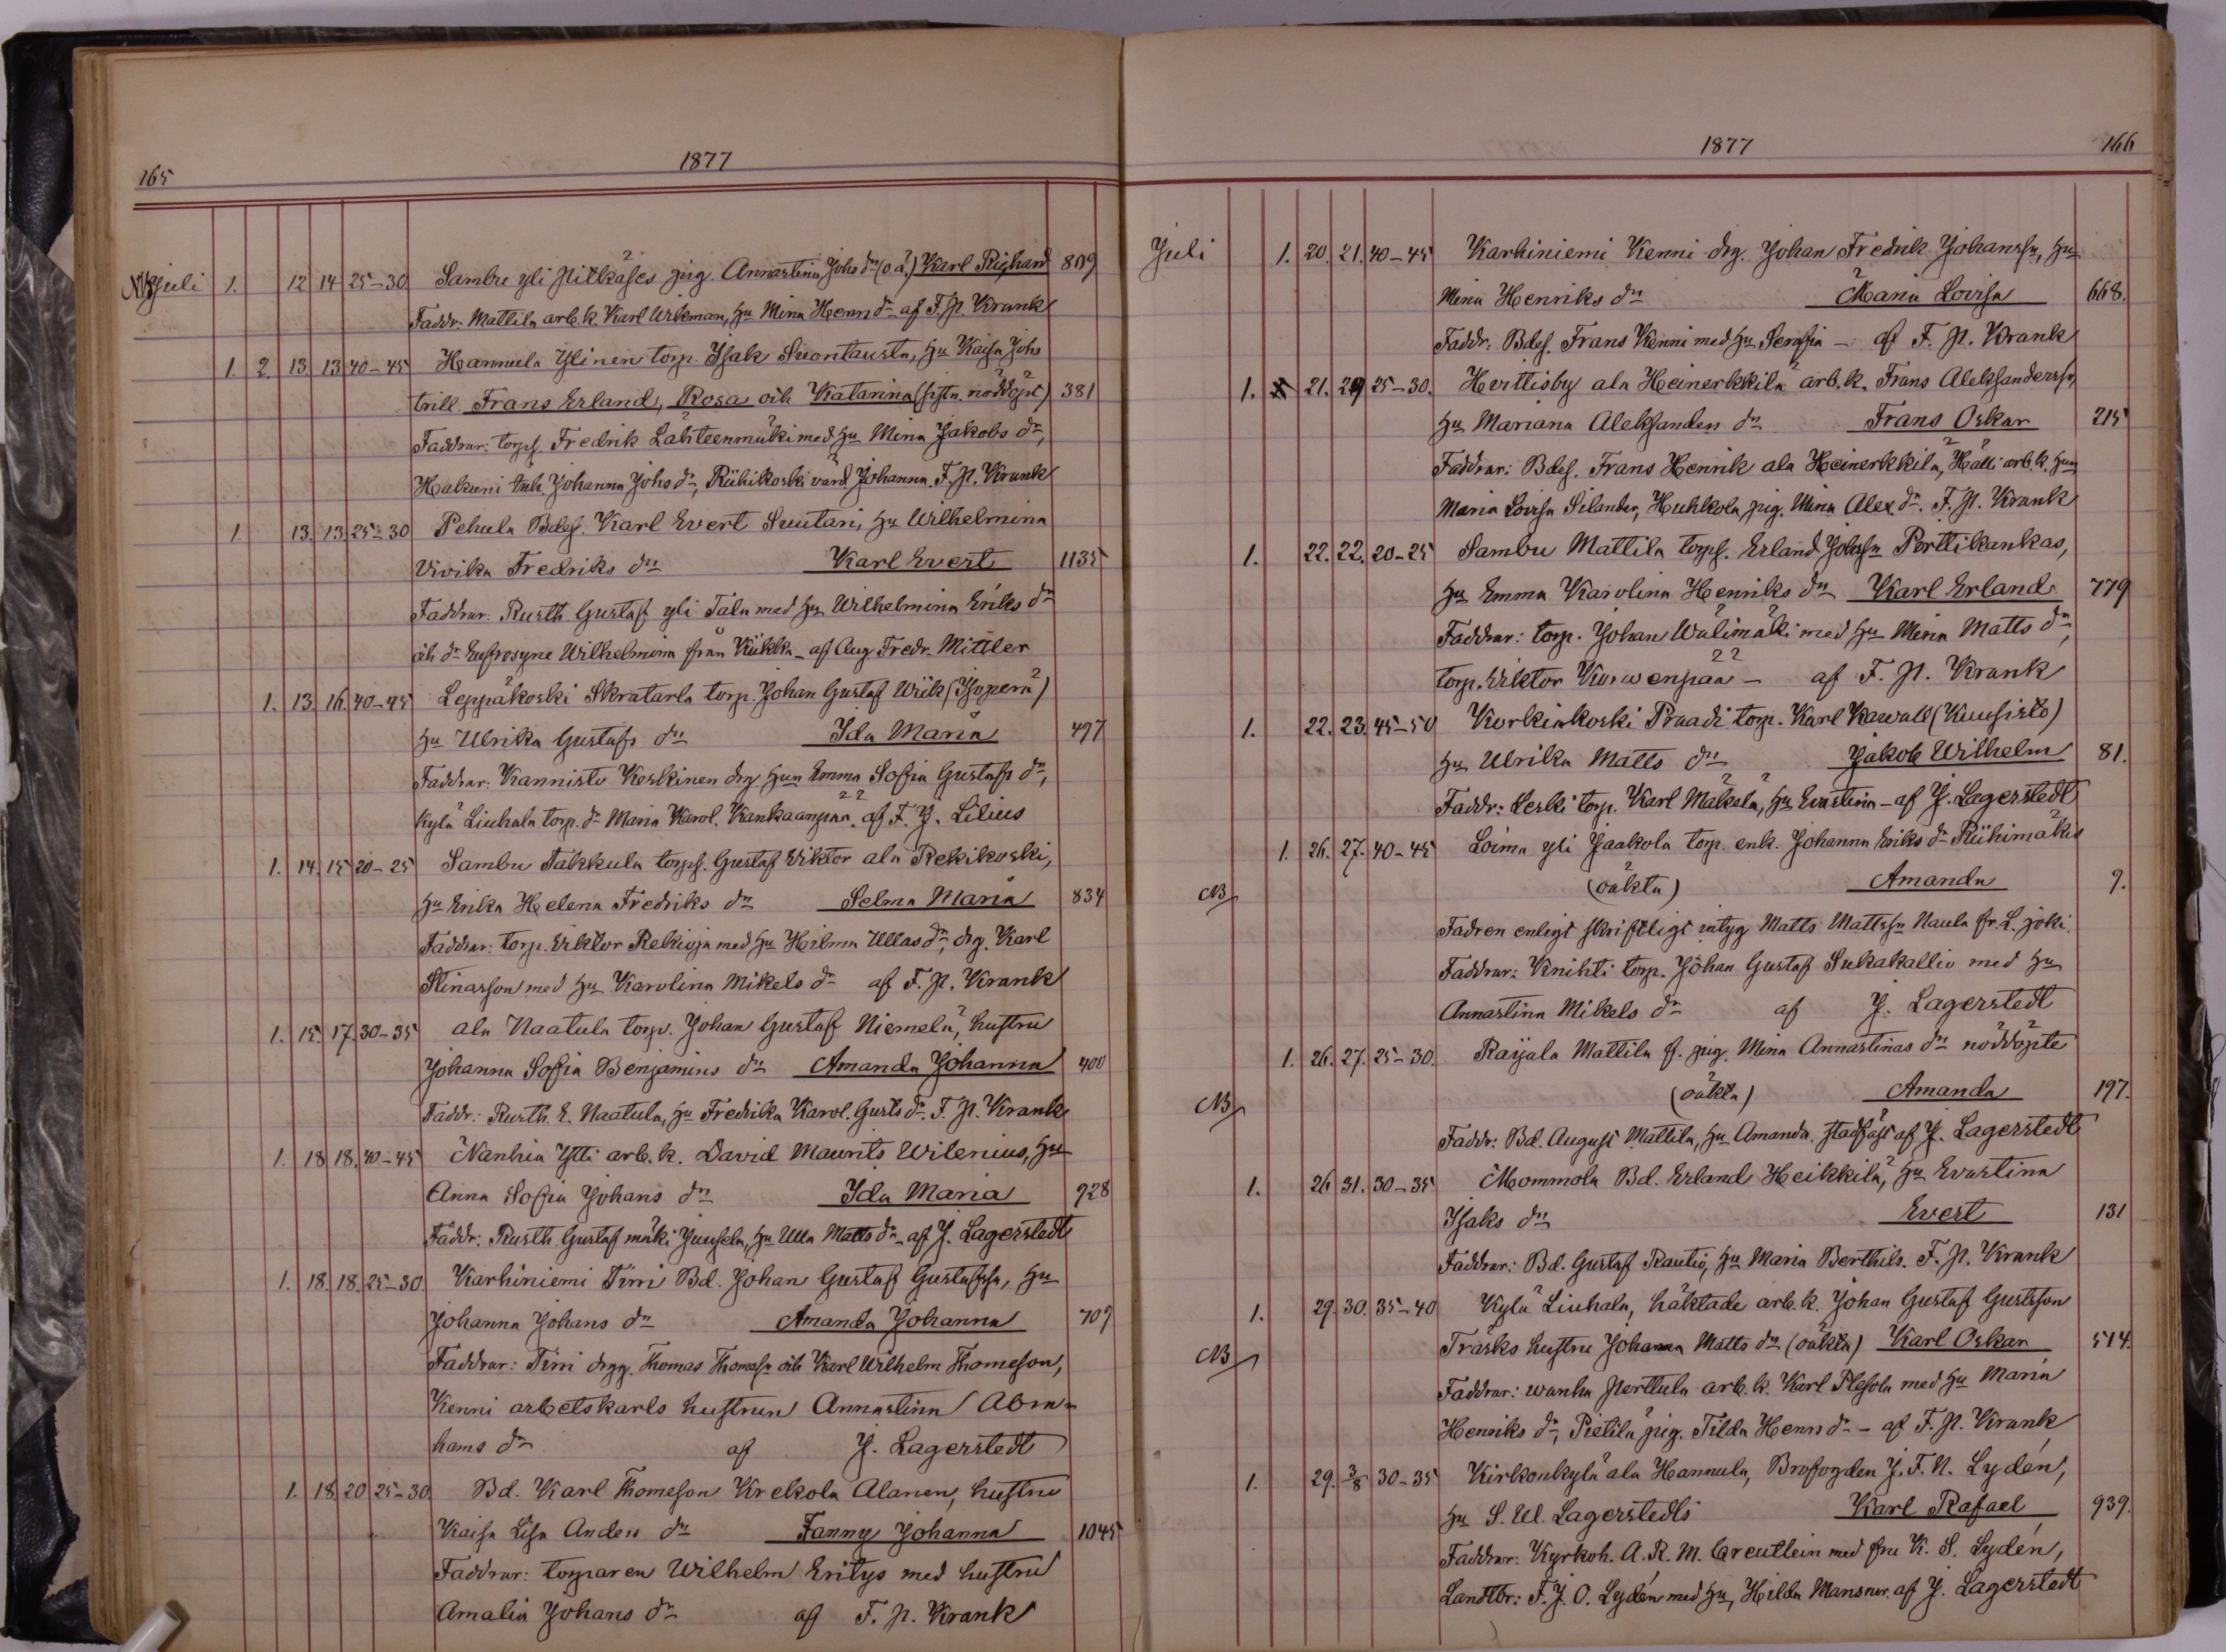 165
1877
NB Juli 1. 12 14 25-30 Sambu yli Pitkäses pig. Annastina Johs dr (o.ä.) Karl Rikhard 809
Faddr: Mattila arb.k. Karl Wikman, hu Mina Henrs dr af F. P. Krank
1. 2. 13. 13 40-45 Hannula Ylinen torp. Isak Suontausta, hu Kaisa Johs
trill. Frans Erland, Rosa och Katarina (sistn. nöddöpt) 381
Faddrar: torps. Fredrik Lähteenmäki med hu Mina Jakobs dr,
Hakuni inh. Johanna Johs dr, Riihikoski värd. Johanna. F. P. Krank
1. 13. 13. 25-30 Pehula Bdes. Karl Evert Suutari, hu Wilhelmina
Vivika Fredriks dr Karl Evert 1135
Faddrar. Rusth. Gustaf yli Tala med hu Wilhelmina Eriks dr
och dr Eufrosyne Wilhelmina från Kiikka - af Aug. Fredr. Mittler
1. 13. 16. 40-45 Leppäkoski Skratarla torp. Johan Gustaf Wiik (Isoperä)
hu Ulrika Gustafs dr Ida Maria 497
Faddrar: Kannisto Keskinen drg hun Emma Sofia Gustafs dr,
kylä Liuhala torp. dr Maria Karol. Kankaanpää. af F. J. Lilius
1. 14. 15 20-25 Sambu Takkula torps. Gustaf Viktor ala Rekikoski,
hu Erika Helena Fredriks dr Selma Maria 834
Faddrar: torp. Viktor Rekioja med hu Hilma Ullas dr, drg. Karl
Stinasson med hu Karolina Mikels dr af F. P. Krank
1. 15. 17. 30-35 ala Naatula torp. Johan Gustaf Niemelä, hustru
Johanna Sofia Benjamins dr Amanda Johanna 400
Faddr: Rusth. E. Naatula, hu Fredrika Karol. Gusts dr. F. P. Krank
1. 18 18. 40-45 Nanhia Ylli arb.k. David Maurits Wilenius, hu
Anna Sofia Johans dr Ida Maria 928
Faddr: Rusth. Gustaf mäki Juusela, hu Ulla Matts dr - af J. Lagerstedt
1. 18. 18. 25-30. Karhiniemi Tirri Bd. Johan Gustaf Gustafssn, hu
Johanna Johans dr Amanda Johanna 709
Faddrar: Tirri drgg. Thomas Thomassn och Karl Wilhelm Thomeson,
Kenni arbetskarls hustrun Annastina Abra-
hams dr af J. Lagerstedt
1. 18. 20 25-30. Bd. Karl Thomeson Krekola Alanen, hustru
Kaisa Lisa Anders dr Fanny Johanna 1045
Faddrar: torparen Wilhelm Eritys med hustru
Amalia Johans dr af F. P. Krank
1877
166
Juli 1. 20. 21. 40-45 Karhiniemi Kenni drg. Johan Fredrik Johanssn, hu
Mina Henriks dr Maria Lovisa 668.
Faddr: Bdes. Frans Kenni med hu Serafia - af F. P. Krank
1. 21. 29 25-30. Hvittisby ala Heinerkkilä arb.k. Frans Aleksanderssn,
hu Mariana Aleksanders dr Frans Oskar 215
Faddrar: Bdes. Frans Henrik ala Heinerkkilä, Hälli arb.k. hun
Maria Lovisa Silander, Huhkola pig. Mina Alex. dr. F. P. Krank
1. 22. 22. 20-25 Sambu Mattila torps. Erland Johssn Perttikankas,
hu Emma Karolina Henriks dr Karl Erland 779
Faddrar: torp. Johan Wälimäki med hu Mina Matts dr,
torp. Viktor Korwenpää - af F. P. Krank
1. 22. 23. 45-50 Korkiakoski Praadi torp. Karl Kawall (Kuusisto)
hu Ulrika Matts dr Jakob Wilhelm 81.
Faddr: Leski torp. Karl Mäkelä, hu Evastina - af J. Lagerstedt
1. 26. 27. 40-45 Loima yli Jaakola torp. enk. Johanna Eriks dr Riihimäki
NB (oäkta) Amanda 9.
Fadren enligt skriftligt intyg Matts Mattssn Naula fr. L. joki.
Faddrar: Knihti torp. Johan Gustaf Sukakallio med hu
Annastina Mikels dr af J. Lagerstedt
1. 26. 27. 25-30. Raijala Mattila f. pig. Mina Annastinas dr nöddöpte
NB (oäkta) Amanda 197.
Faddr: Bd. August Mattila, hu Amanda. stadfäst af J. Lagerstedt
1. 26 31. 30-35 Mommola Bd. Erland Heikkilä, hu Evastina
Isaks dr Evert 131
Faddrar: Bd. Gustaf Rautio, hu Maria Berthils. F. P. Krank
1. 29. 30. 35-40 Kylä Liuhala, häktade arb.k. Johan Gustaf Gustsson
NB Träsks hustru Johanna Matts dr (oäkta) Karl Oskar 514.
Faddrar: wanha Perttula arb.k. Karl Plesola med hu Maria
Henriks dr, Pietilä pig. Tilda Henrs dr - af F. P. Krank
1. 29. 3/8 30-35 Kirkonkylä ala Hannula, Brofogden J. F. N. Lydén,
hu S. W. Lagerstedts Karl Rafael 939.
Faddrar: Kyrkoh. A. R. M. Creutlein med fru K. S. Lydén,
Landtbr: F. J. O. Lydén med hu, Hilda Mansner. af J. Lagerstedt